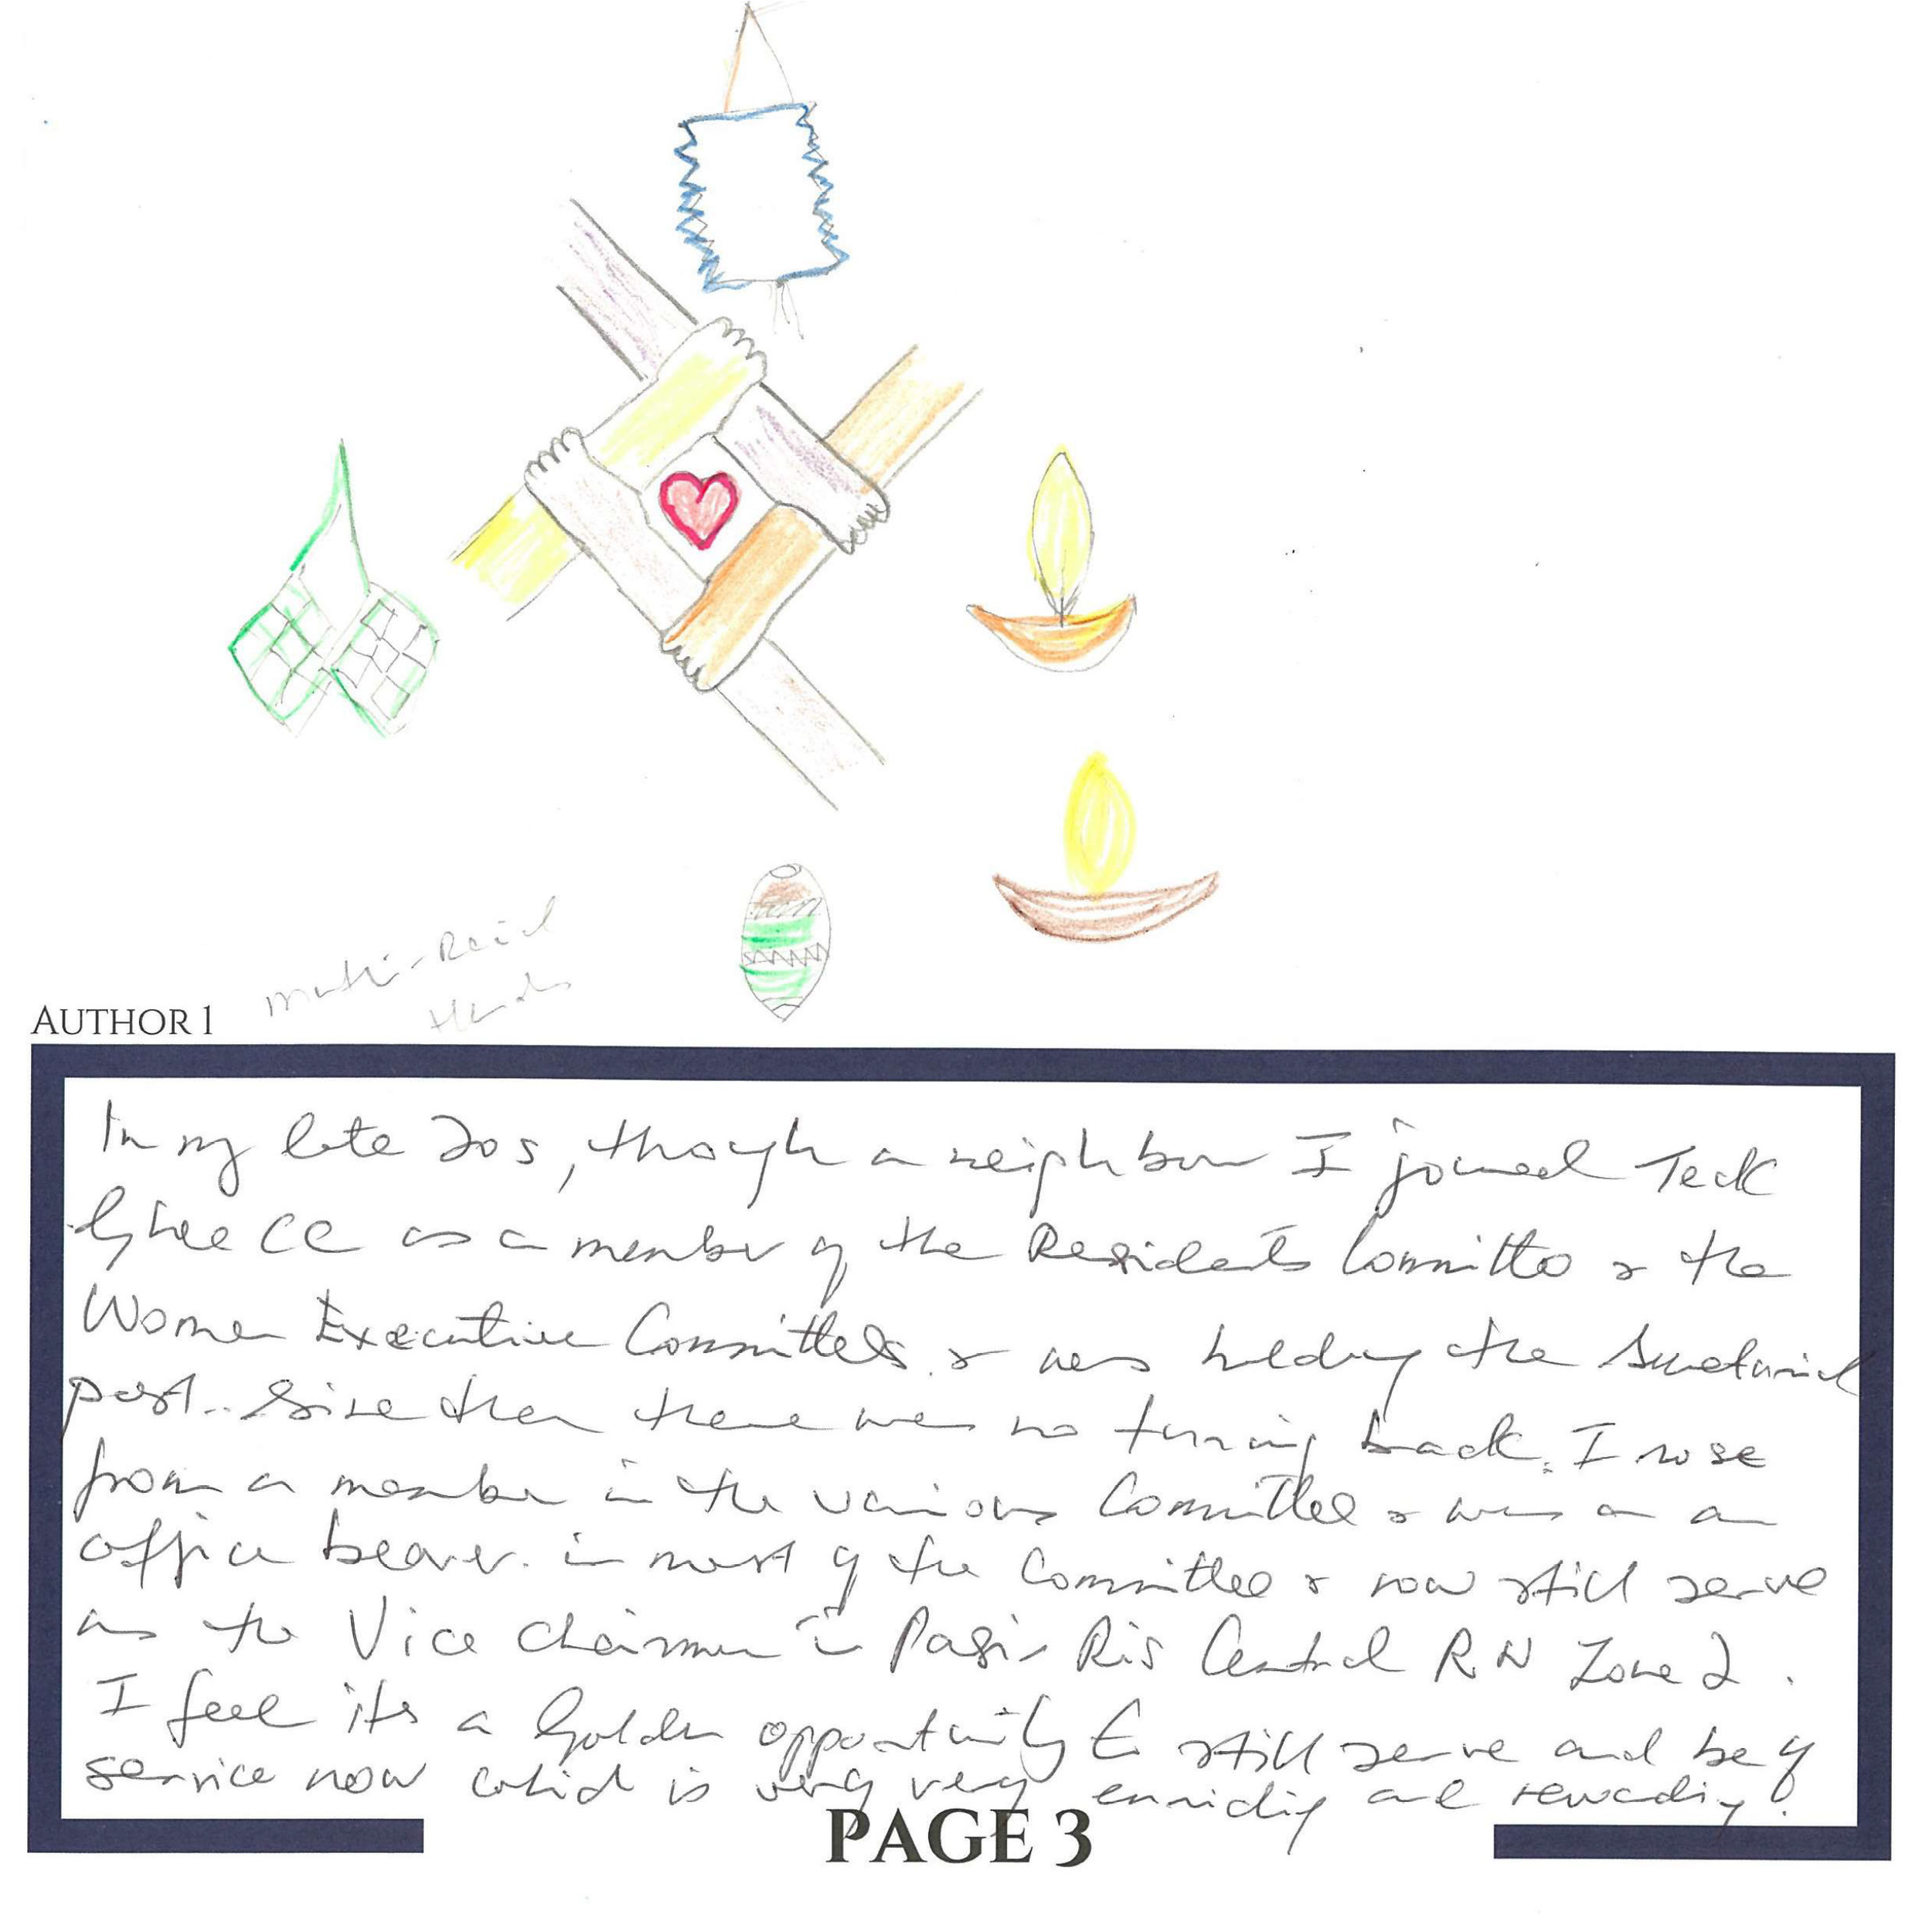 Multi-Racial
Hands
AUTHOR 1
In my late 20s, though a neighbour I joined Teck
Ghee CC as a member of the Residents Committee & the
Women Executive Committees. & was holding the Secretarial
post. Since then there was no turning back. I rose
from a member in the various Committee & was on an
office bearer. in most of the Committee & now still serve
as the Vice Chairman in Pasir Ris Central RN Zone 2.
I feel its a Golden opportunity to still serve and be of
service now which is very very enriching and rewarding!
PAGE 3